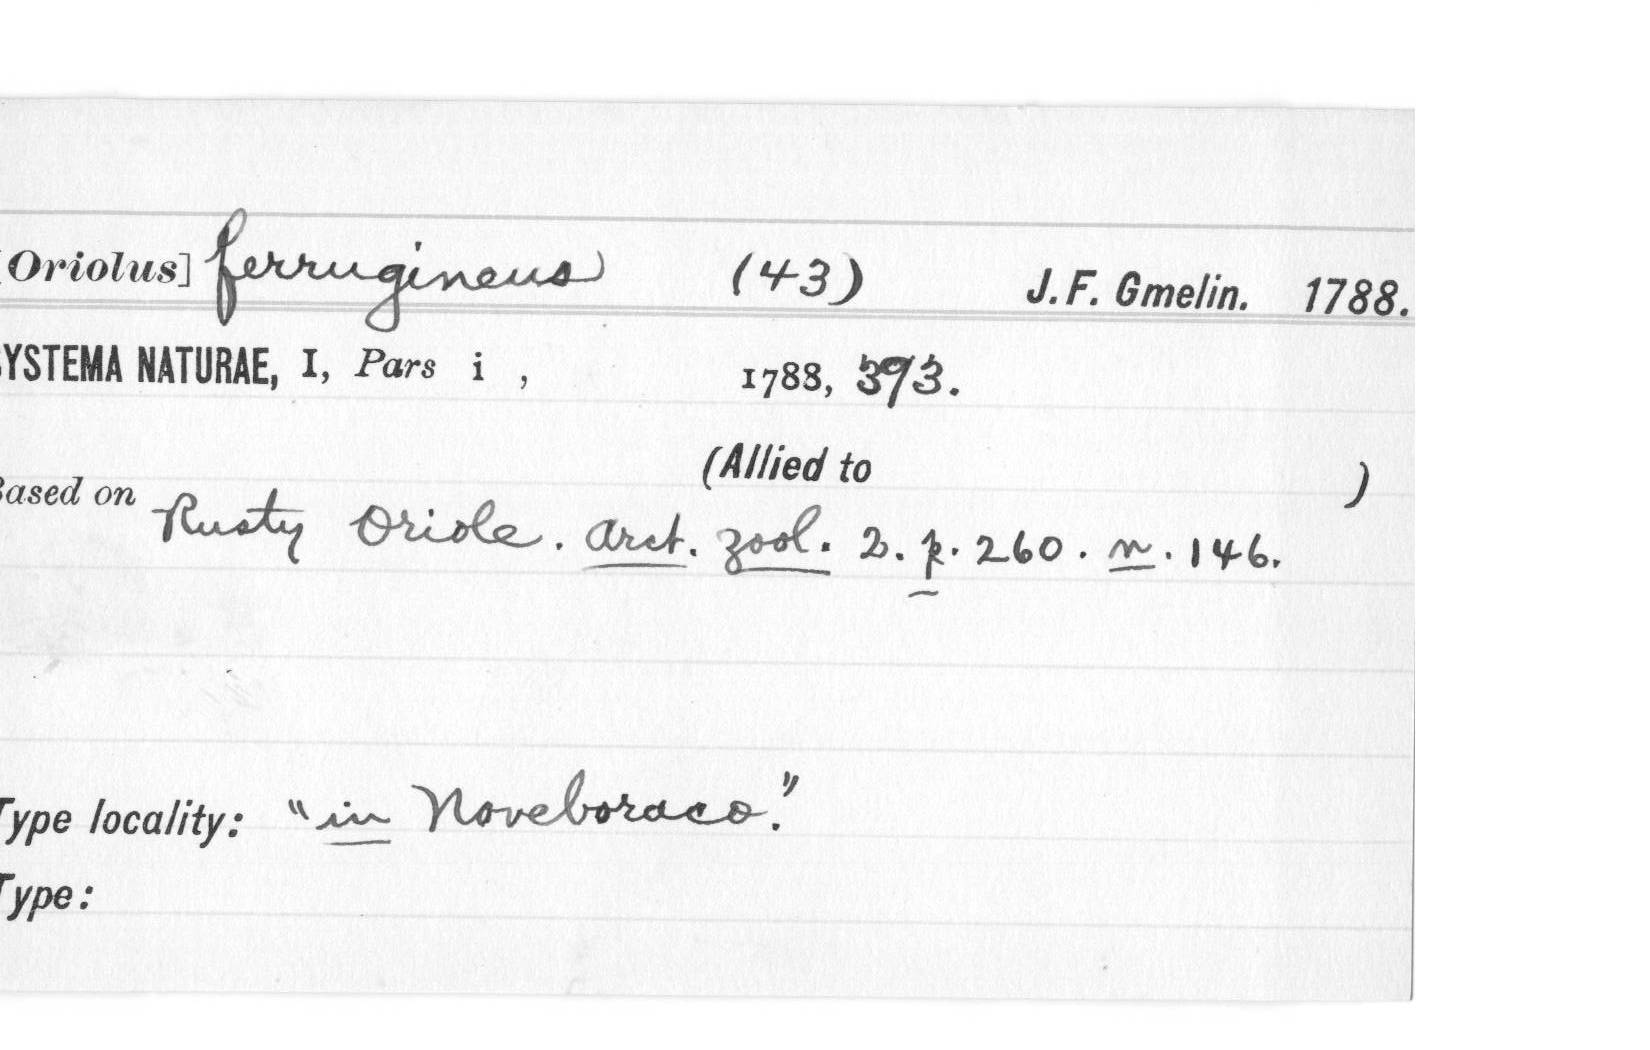 [Oriolus] ferrugineus (43) J. F. Gmelin. 1788.
SYSTEMA NATURAE, I, Pars i , 1788, 393.
(Allied to )
Based on Rusty Oriole. Arct. Zool. 2. p. 260. n. 146.
Type locality: "in Noveboraco."
Type: